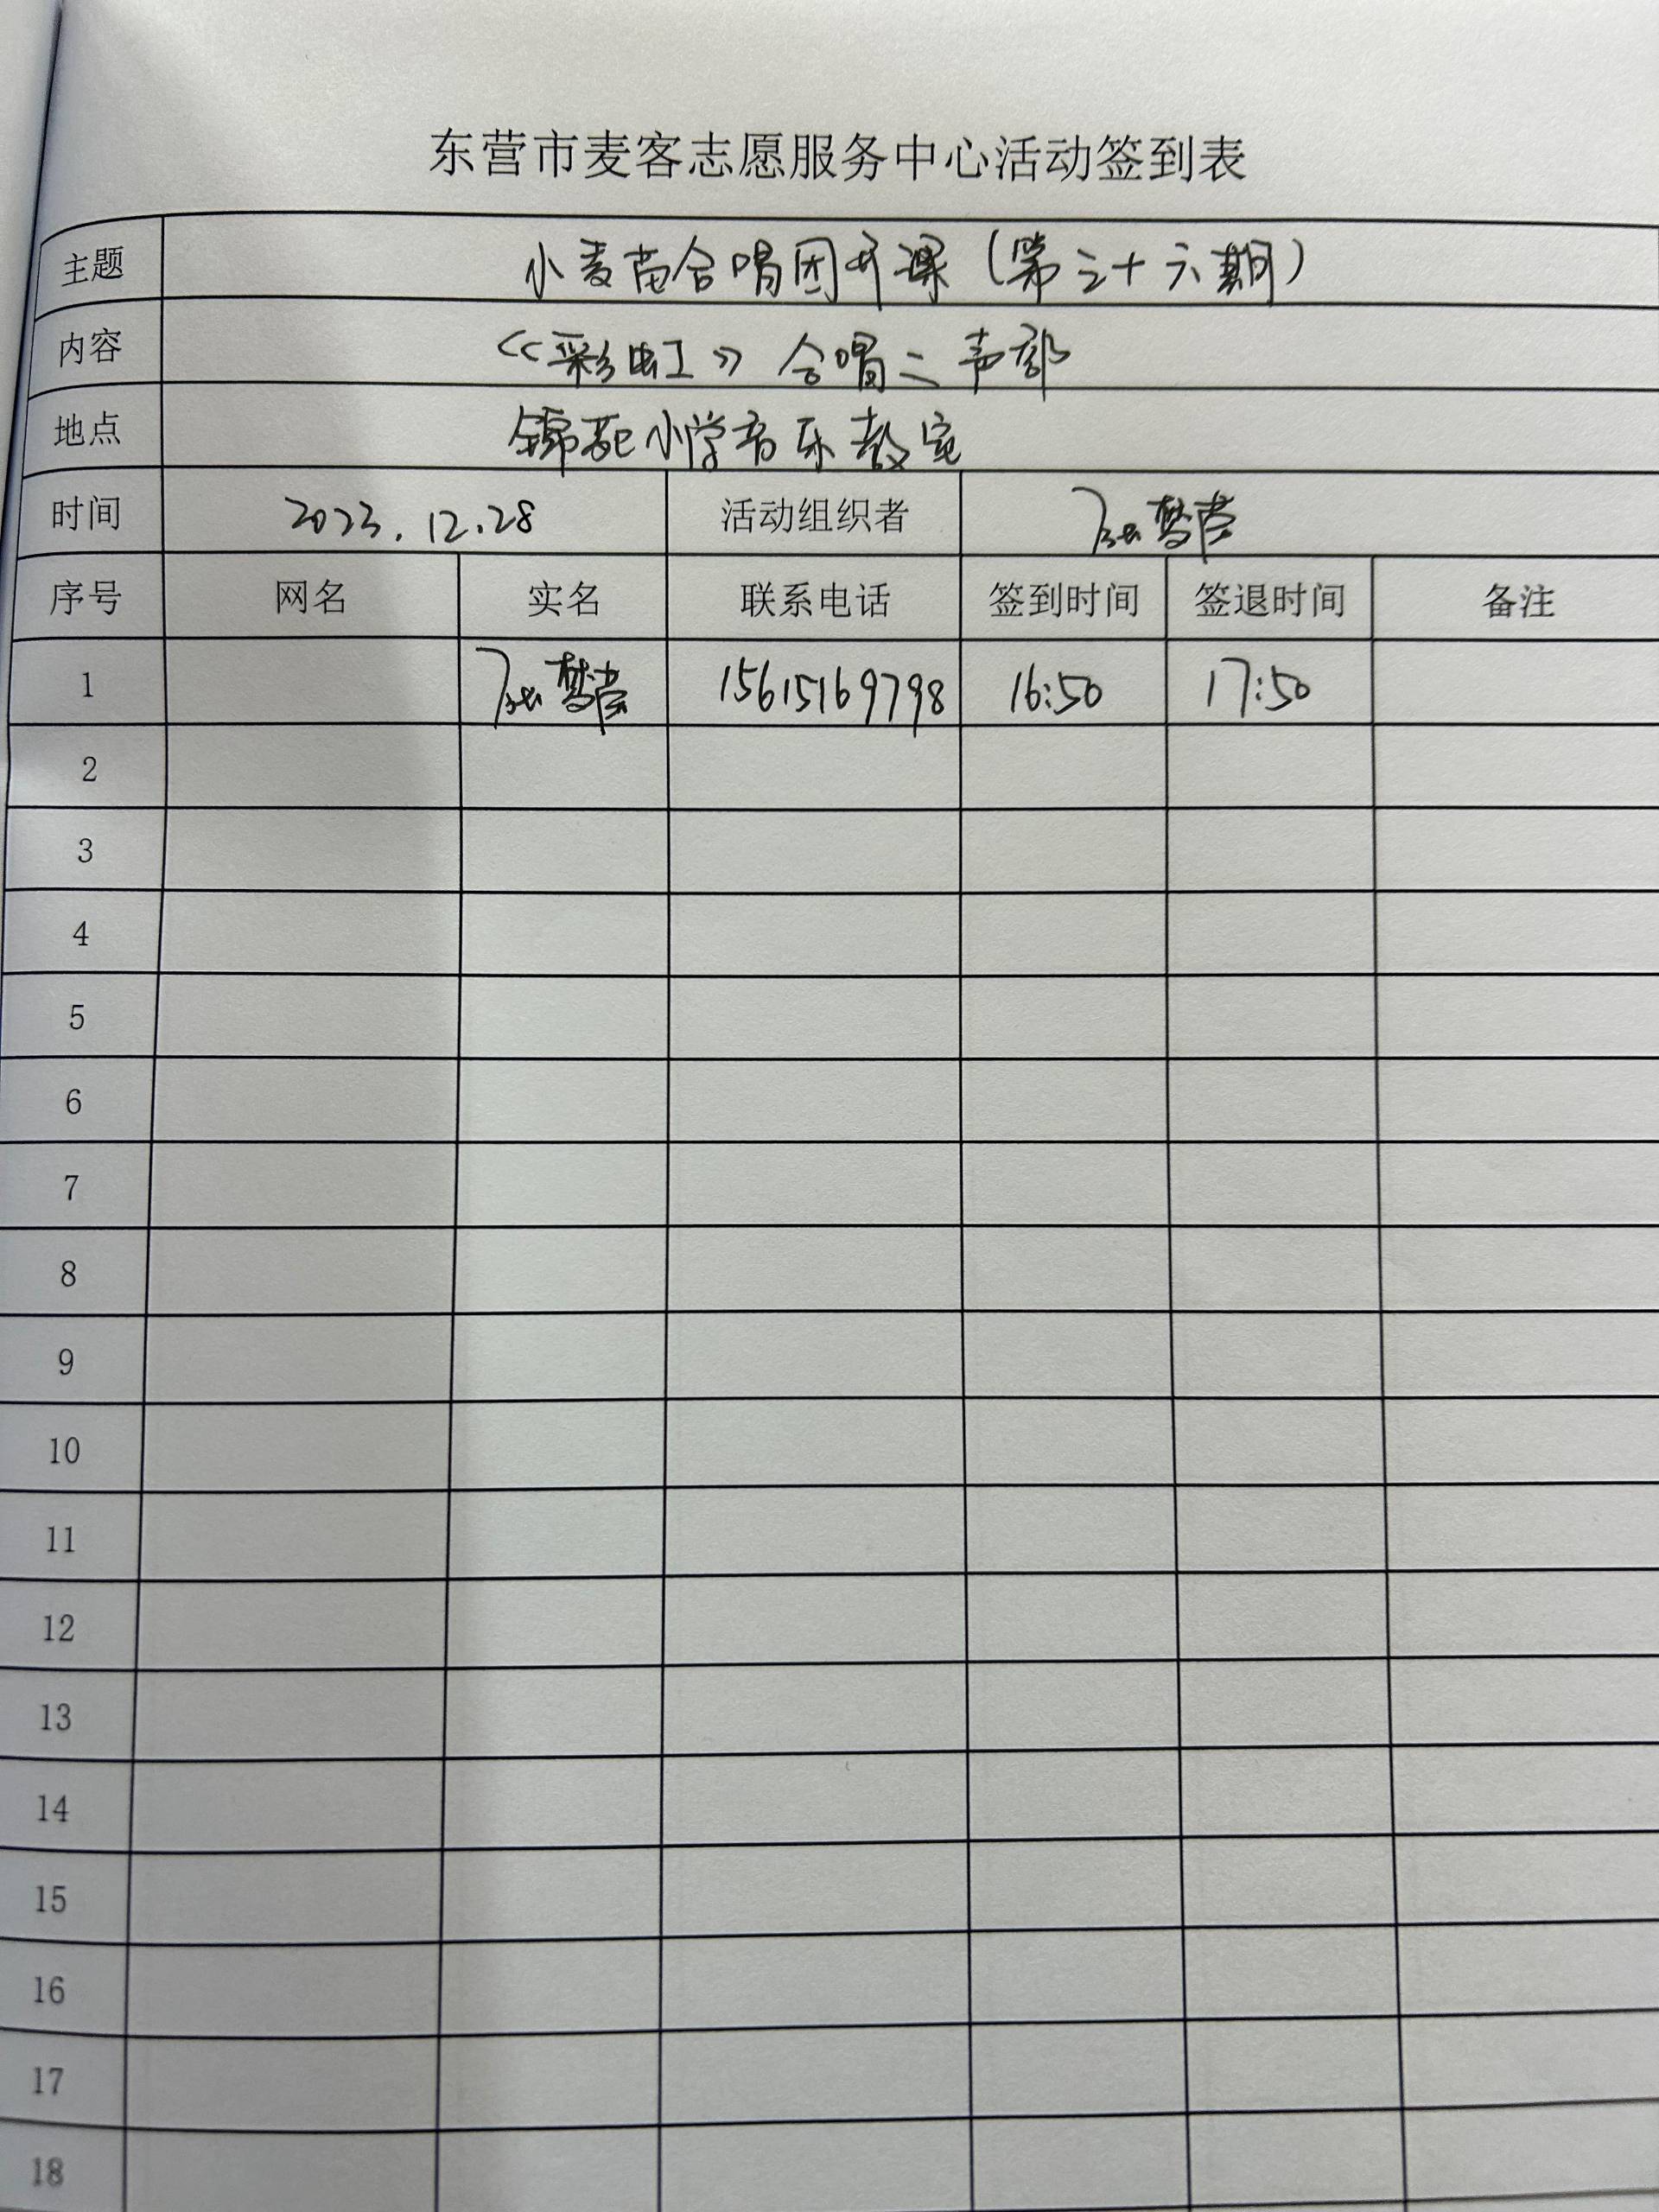 东营市麦客志愿服务中心活动签到表
主题 小麦苗合唱团开课（第三十六期）
内容 《彩虹》合唱二声部
地点 锦苑小学音乐教室
时间 2023.12.28 活动组织者
序号 网名 实名 联系电话 签到时间 签退时间 备注
1 15615169798 16:50 17:50
2
3
4
5
6
7
8
9
10
11
12
13
14
15
16
17
18